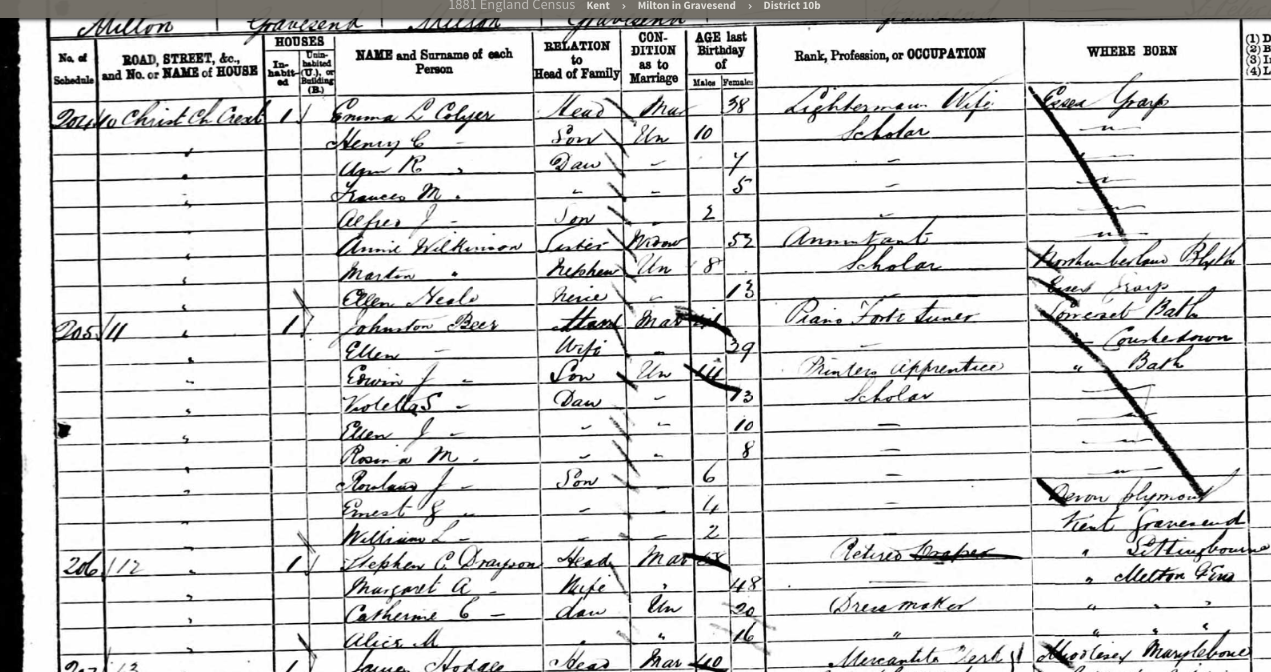 1881 England Census Kent › Milton in Gravesend › District 10b
Milton Gravesend Milton Gravesend
No. of Schedule ROAD, STREET, &c., and No. or NAME of HOUSE HOUSES In-habit-ed Unin-habited (U.), or Building (B.) NAME and Surname of each Person RELATION to Head of Family CON-DITION as to Marriage AGE last Birthday of Males Females Rank, Profession, or OCCUPATION WHERE BORN
(1) D
(2) B
(3) I
(4) L
204 10 Christ Ch Crest 1 Emma L Colyer Head Mar 38 Lighterman Wife Essex Grays
Henry C - Son Un 10 Scholar "
Ann R " Daw - 7 - "
Frances M. " - 5 - "
Alfred J - Son - 2 - "
Annie Wilkinson Sister Widow 52 Annuitant "
Martin " Nephew Un 8 Scholar Northumberland Blyth
Ellen Neale Niece - 13 Essex Grays
205 11 " 1 Johnston Beer Head Mar Piano Forte Tuner Somerset Bath
Ellen - Wife - 39 -
Edwin J - Son Un 14 Printers Apprentice " Bath
Violetta S - Daw - 13 Scholar -
Ellen J - - - 10 - -
Rosina M. - - 8 - "
Rowland J - Son 6 - "
Ernest G - - 4 - Devon Plymouth
William L - - - 2 Kent Gravesend
206 12 " 1 Stephen C Drayson Head Mar Retired Draper " Sittingbourne
Margaret A - Wife " 48 "
Catherine C - daw Un 20 Dressmaker " "
Alice M " " 16 " " "
207 13 1 James Hodge Head Mar 40 Mercantile Middlesex Marylebone